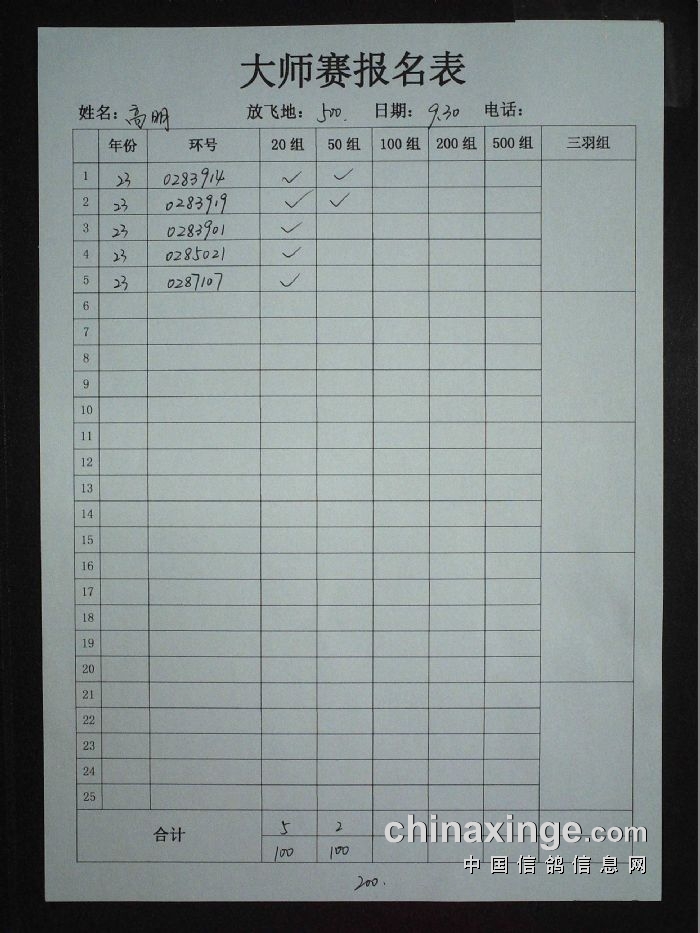 大师赛报名表
姓名：高明 放飞地：500. 日期：9.30 电话：
年份 环号 20 组 50 组 100 组 200 组 500 组 三羽组
1 23 0283914 ✓ ✓
2 23 0283919 ✓ ✓
3 23 0283901 ✓
4 23 0285021 ✓
5 23 0287107 ✓
6
7
8
9
10
11
12
13
14
15
16
17
18
19
20
21
22
23
24
25
合计 5 2
100 100
200.
chinaxinge.com
中国信鸽信息网